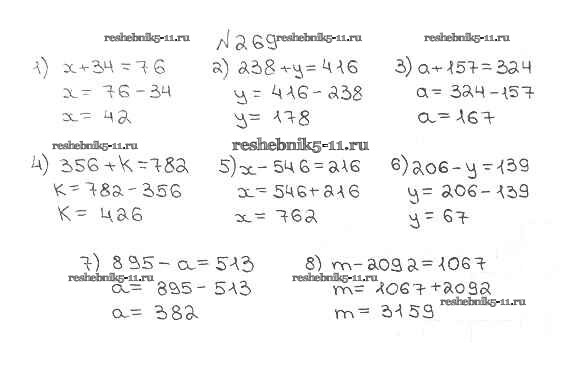 reshebnik5-11.ru №269 reshebnik5-11.ru reshebnik5-11.ru
1) x+34=76 2) 238+y=416 3) a+157=324
x= 76-34 y= 416-238 a= 324-157
x= 42 y= 178 a= 167
reshebnik5-11.ru reshebnik5-11.ru
4) 356+k=782 5) x-546=216 6) 206-y=139
k= 782-356 x= 546+216 y= 206-139
k= 426 x= 762 y= 67
7) 895-a=513 8) m-2092=1067
reshebnik5-11.ru reshebnik5-11.ru
a= 895-513 m= 1067+2092
reshebnik5-11.ru
a= 382 m= 3159